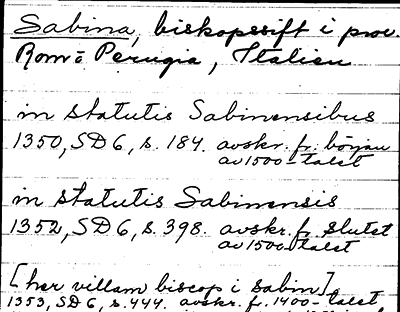 Sabina, biskopsstift i prov.
Rom o Perugia, Italien
in statutis Sabinensibus
1350, SD 6, s. 184. avskr. fr. början
av 1500-talet
in statutis Sabinensis
1352, SD 6, s. 398. avskr. fr. slutet
av 1500-talet
[her villam biscop i Sabin]
1353, SD 6, s. 444. avskr. f. 1400-talet